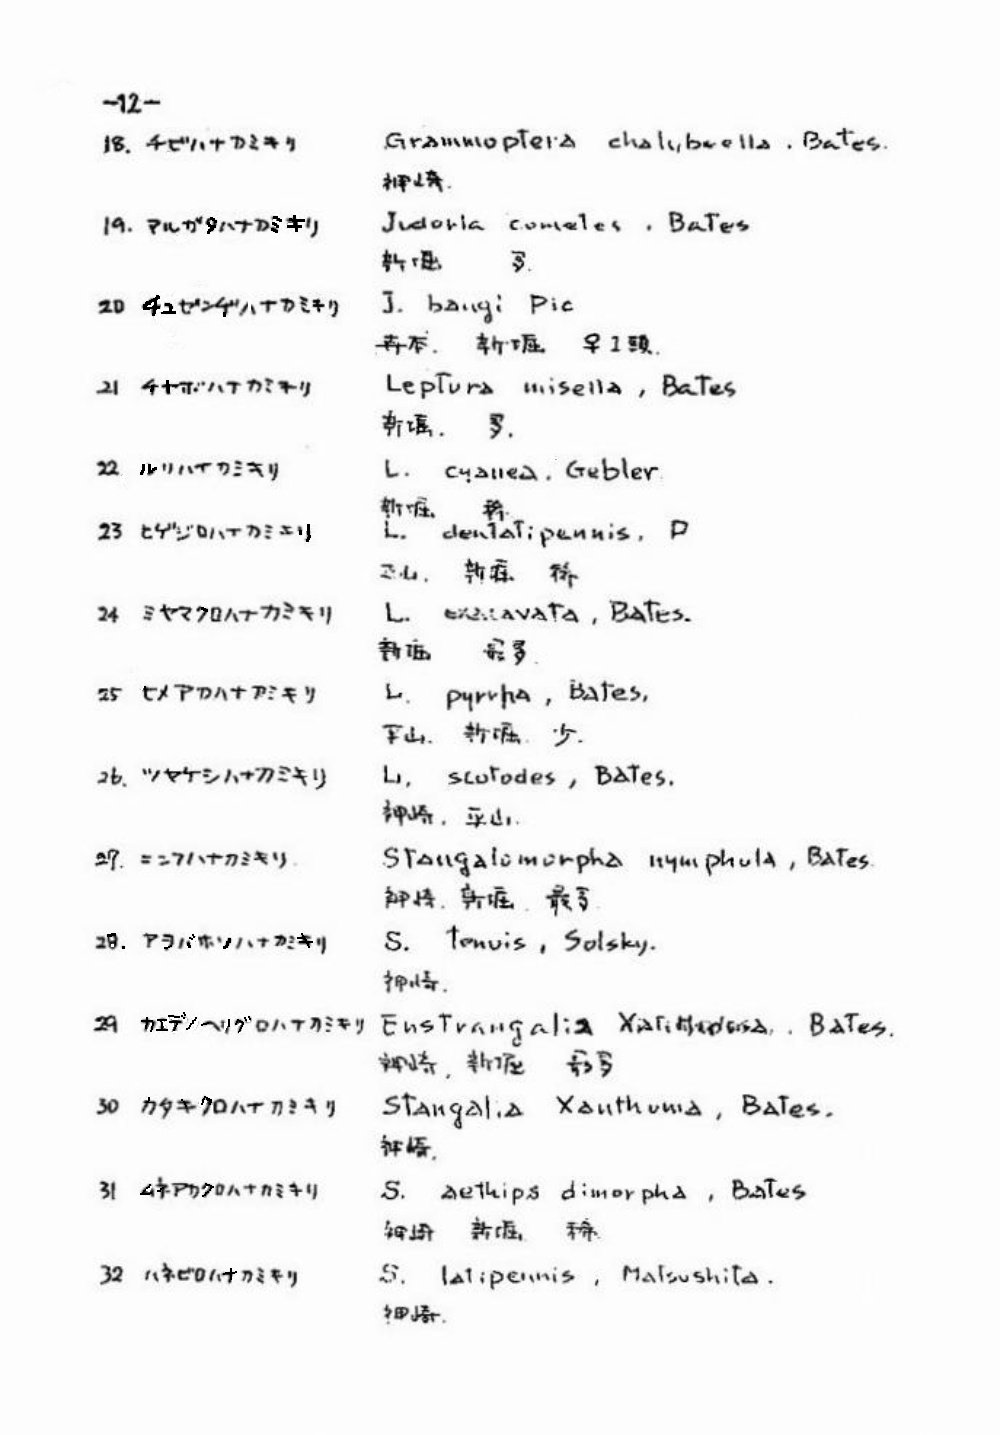 -12-
18. チビハナカミキリ Grammoptera chalybeella . Bates.
神崎.
19. マルガタハナカミキリ Judoria cometes . Bates
新堀 多.
20 チュゼンヂハナカミキリ J. bangi Pic
新堀 ♀1頭.
21 チヤボハナカミキリ Leptura misella , Bates
新堀. 多.
22 ルリハナカミキリ L. cyanea . Gebler
新堀. 稀.
23 ヒゲジロハナカミキリ L. dentatipennis , P
平山. 新堀 稀
24 ミヤマクロハナカミキリ L. excavata , Bates.
新堀 最多.
25 ヒメアカハナカミキリ L. pyrrha , Bates,
平山. 新堀. 少.
26. ツヤケシハナカミキリ L, scotodes , Bates.
神崎. 平山.
27. ニンフハナカミキリ. Strangalomorpha nymphula , Bates.
神崎. 新堀. 最多.
28. アヲバホソハナカミキリ S. tenuis , Solsky.
神崎.
29 カエデノヘリグロハナカミキリ Enstrangalia . Bates.
神崎. 新堀 最多
30 カタキクロハナカミキリ Stangalia Xanthuma , Bates.
神崎.
31 ムネアカクロハナカミキリ S. aethips dimorpha , Bates
神崎 新堀. 稀.
32 ハネビロハナカミキリ S. latipennis , Matsushita .
神崎.